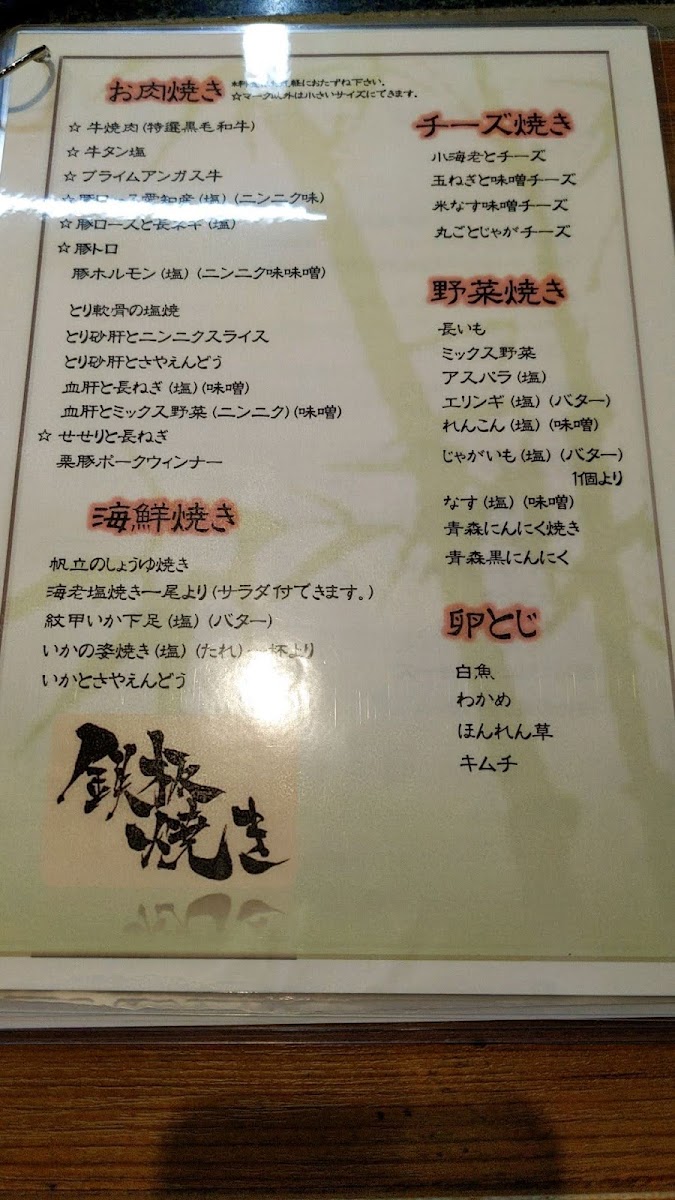 お肉焼き
軽におたずね下さい。
☆マーク以外は小さいサイズにできます。
☆ 牛焼肉(特選黒毛和牛)
☆ 牛タン塩
☆ プライムアンガス牛
☆豚ロース愛知産(塩)(ニンニク味)
☆豚ロースと長ネギ(塩)
☆豚トロ
豚ホルモン(塩)(ニンニク味味噌)
とり軟骨の塩焼
とり砂肝とニンニクスライス
とり砂肝とさやえんどう
血肝と長ねぎ(塩)(味噌)
血肝とミックス野菜(ニンニク)(味噌)
☆ せせりと長ねぎ
栗豚ポークウィンナー
海鮮焼き
帆立のしょうゆ焼き
海老塩焼き一尾より(サラダ付できます。)
紋甲いか下足(塩)(バター)
いかの姿焼き(塩)(たれ)一杯より
いかとさやえんどう
鉄板焼き
チーズ焼き
小海老とチーズ
玉ねぎと味噌チーズ
米なす味噌チーズ
丸ごとじゃがチーズ
野菜焼き
長いも
ミックス野菜
アスパラ(塩)
エリンギ(塩)(バター)
れんこん(塩)(味噌)
じゃがいも(塩)(バター)
1個より
なす(塩)(味噌)
青森にんにく焼き
青森黒にんにく
卵とじ
白魚
わかめ
ほんれん草
キムチ